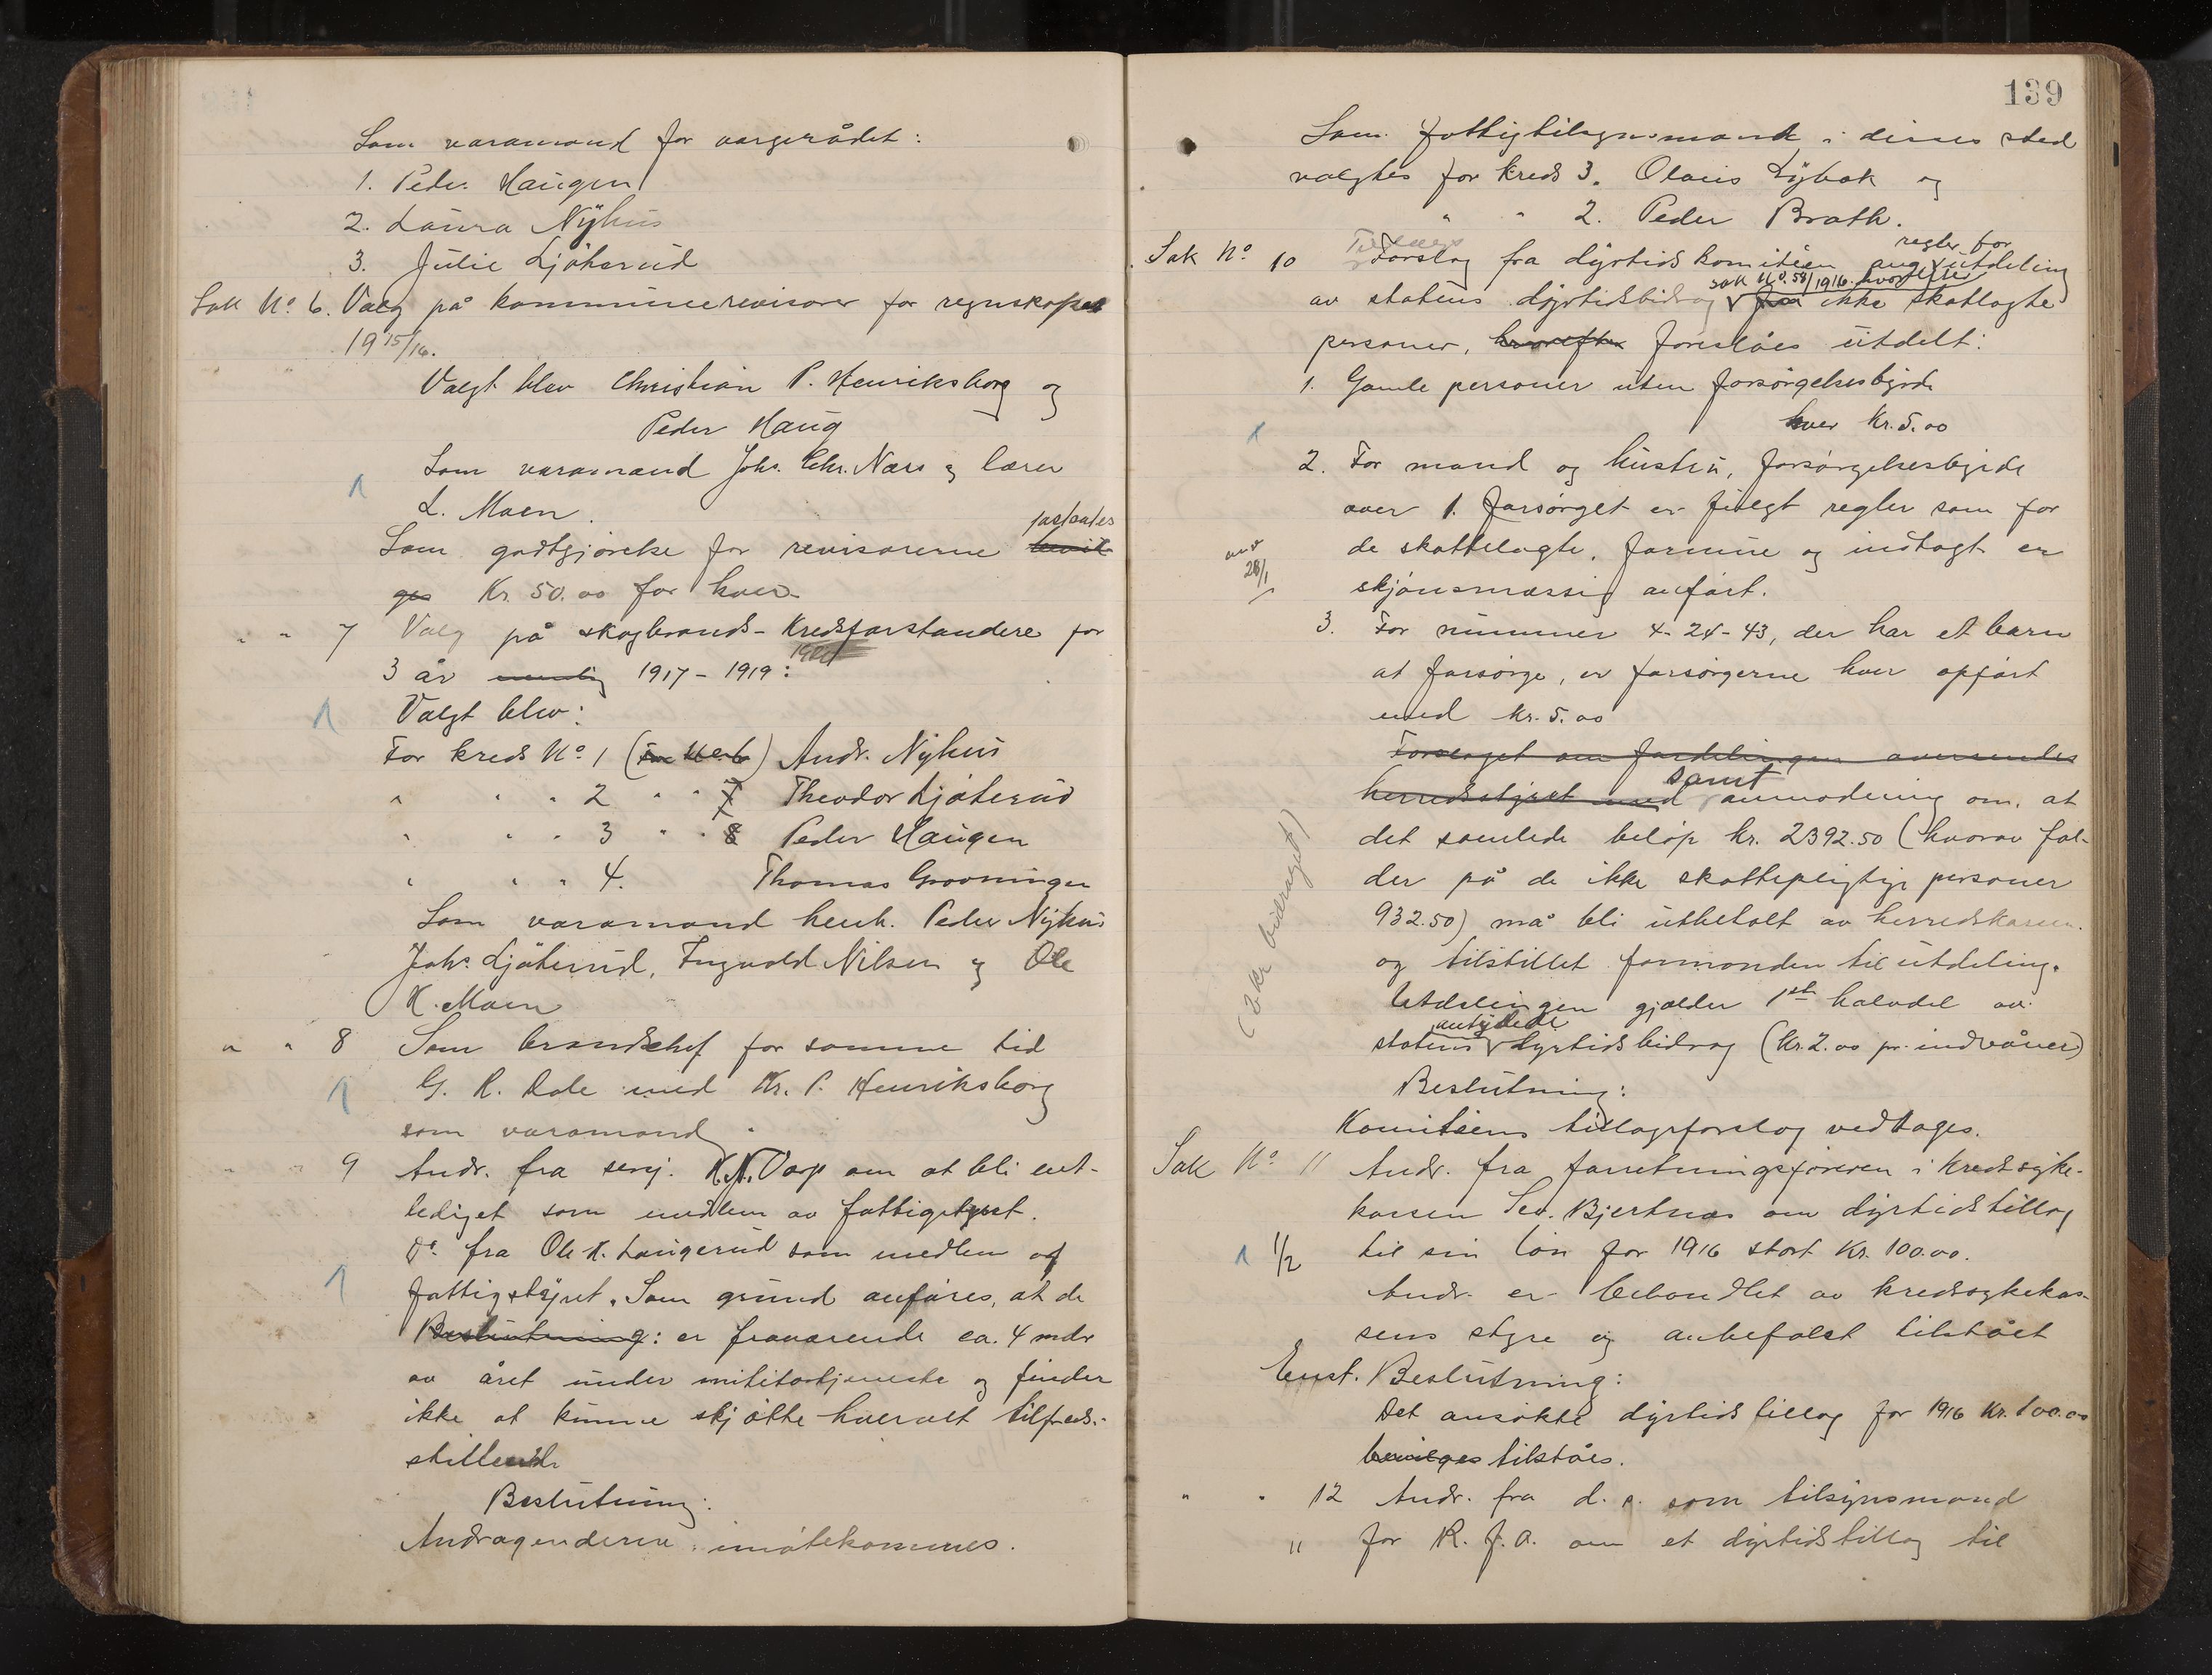 Som varamænd for vergerådet:
1. Peder Haugen
2. Laura Nyhus
3. Julie Ljøterud
Sak No. 6. Valg på kommunerevisorer for regnskapet
1915/16.
Valgt blev Christian P. Henriksborg og
Peder Haug
Som varamænd Johs. Chr. Næss og lærer
L. Moen.
fastsattes
Som godtgjørelse for revisorerne bevil-
ges Kr. 50.00 for hver.
" " 7 Valg på skogbrands-Kredsforstandere for
3 år nemlig 1917-1919:
Valgt blev:
For kreds No. 1 Andr. Nyhus
" " " 2 " " 7 Theodor Ljøterud
" " " 3 " " 8 Peder Haugen
" " " 4. Thomas Grovningen
Som varamænd henh. Peder Nyhus
Johs. Ljøterud, Ingvald Nilsen og Ole
K. Moen
" " 8 Som brandchef for samme tid
G. K. Dale med Kr. P. Henriksborg
som varamand.
" " 9 Andr. fra sersj. K. N. Varp om at bli ent-
lediget som medlem av fattigstyret.
Do. fra Ole K. Laugerud som medlem af
fattigstyret. Som grund anføres, at de
Beslutning: er fraværende ca. 4 mdr
av året under militærtjeneste og finder
ikke at kunne skjøtte hvervet tilfreds-
stillende
Beslutning:
Andragenderne imøtekommes.
139
Som fattigtilsynsmænd i deres sted
valgtes for kreds 3. Olaus Lybæk og
" " 2. Peder Brath.
Tillægs regler for
Sak No. 10 Forslag fra dyrtidskomitéen ang. utdeling
sak No. 58/1916. hvorefter
av statens dyrtidsbidrag fra ikke skatlagte
personer, hvorefter foreslåes utdelt:
1. Gamle personer uten forsørgelsesbyrde
hver Kr. 5.00
2. For mand og hustru, forsørgelsesbyrde
over 1 forsørget er fulgt regler som for
de skattelagte. formue og indtægt er
skjønsmæssig anført.
28/1
3. For nummer 4-24-43, der har et barn
at forsørge, er forsørgerne hver opført
med kr. 5.00
Forslaget om fordelingen oversendes
samt
herredsstyret med anmodning om, at
det samlede beløp kr. 2392.50 (hvorav fal-
der på de ikke skattepligtige personer
932.50) må bli utbetalt av herredskassen
og tilstillet formanden til utdeling.
Utdelingen gjælder 1ste halvdel av
antydede
statens dyrtidsbidrag (Kr. 2.00 pr. indvåner)
(2 kr bidraget)
Beslutning:
Komitéens tillægsforslag vedtages.
Sak No. 11 Andr. fra forretningsføreren i kredssyke-
kassen Sev. Bjertnæs om dyrtidstillæg
1/2 til sin løn for 1916 stort Kr. 100.00.
Andr. er behandlet av kredssykekas-
sens styre og anbefalet tilstået
Enst. Beslutning:
Det ansøkte dyrtidstillæg for 1916 Kr. 100.00
bevilges tilståes.
" " 12 Andr. fra d. s. som tilsynsmand
" for R. f. A. om et dyrtidstillæg til